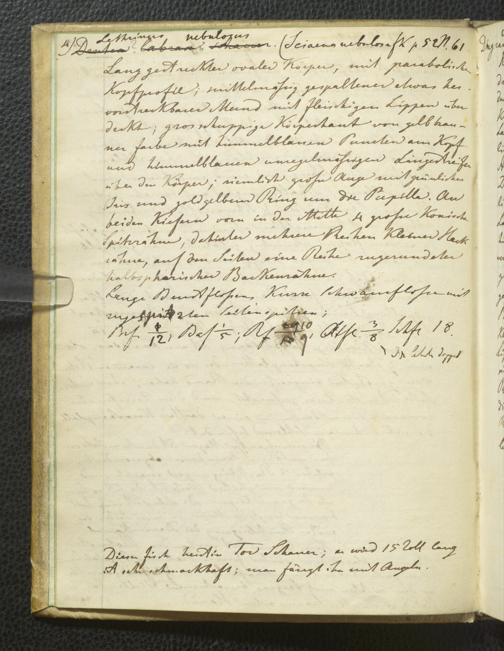 Lethrinus nebulosus
Dentex (Sciaena nebulosa fK p 52 N. 61
Lang gestreckter ovaler Körper, mit parabolischem
Kopfprofil; mittelmäsig gespaltener etwas her-
vorstreckbarer Mund mit fleischigen Lippen über
deckt; grosschuppige Körperhaut von gelbbrau-
ner farbe mit himmelblauen Puncten am Kopf
und himmelblauen unregelmäsigen Längsstreifen
über den Körper; ziemlich große Auge mit grünlicher
Iris und goldgelbem Ring um die Pupille. An
beiden Kiefern vorn in der Mitte 4 große konische
Spitzzähne, dahinter mehrere Reihen kleiner Hech
zähne, auf den Seiten eine Reihe zugerundeter
halbsphärischer Backenzähne.
Lange Brustflossen, kurze Schwanzflosse mit
zugespitzten Seitenspitzen;
Brf 12, Baf 1/5, Rf 10 9, Aftfl 3/8 Schfl 18.
Dieser fisch heist in Tor Schauer; er wird 15 Zoll lang
schmackhaft; man fängt ihn mit Angeln.